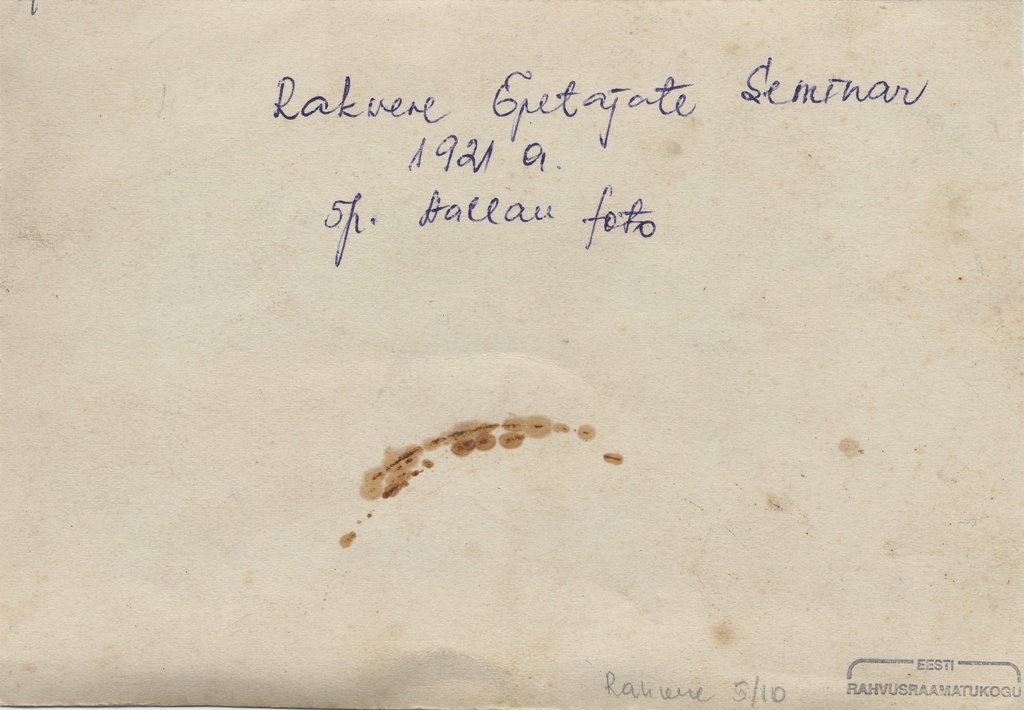 Rakvere Epetajate Seminar
1921 a.
Hallau foto
Rakvere 5/10
EESTI
RAHVUSRAAMATUKOGU